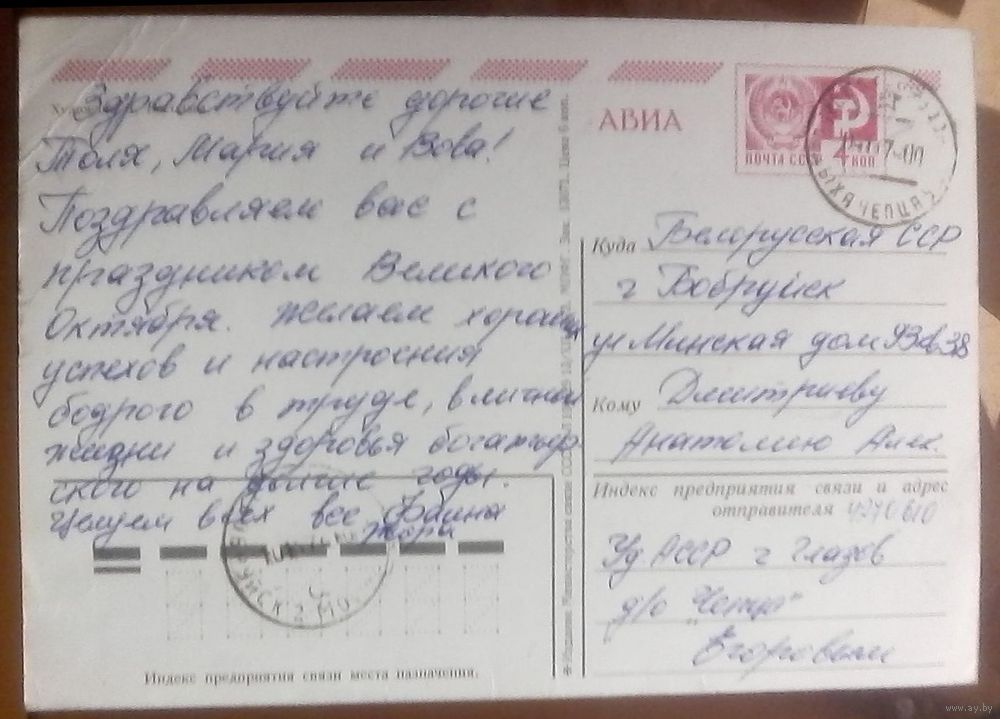 Здравствуйте дорогие
Толя, Мария и Вова!
Поздравляем вас с
праздником Великого
Октября. Желаем хороших
успехов и настроения
бодрого в труде, в личной
жизни и здоровья богатыр
ского на долгие годы.
Целуем всех все
Жора
АВИА
ПОЧТА СС
4 КОП
ЧЕПЦА
Куда Белорусская ССР
г Бобруйск
ул Минская дом 93
Кому Дмитриеву
Анатолию Алек.
Индекс предприятия связи и адрес
отправителя 427610
Уд АССР г Глазов
д/о "Чепца"
Егоровым
Индекс предприятия связи места назначения.
www.ay.by